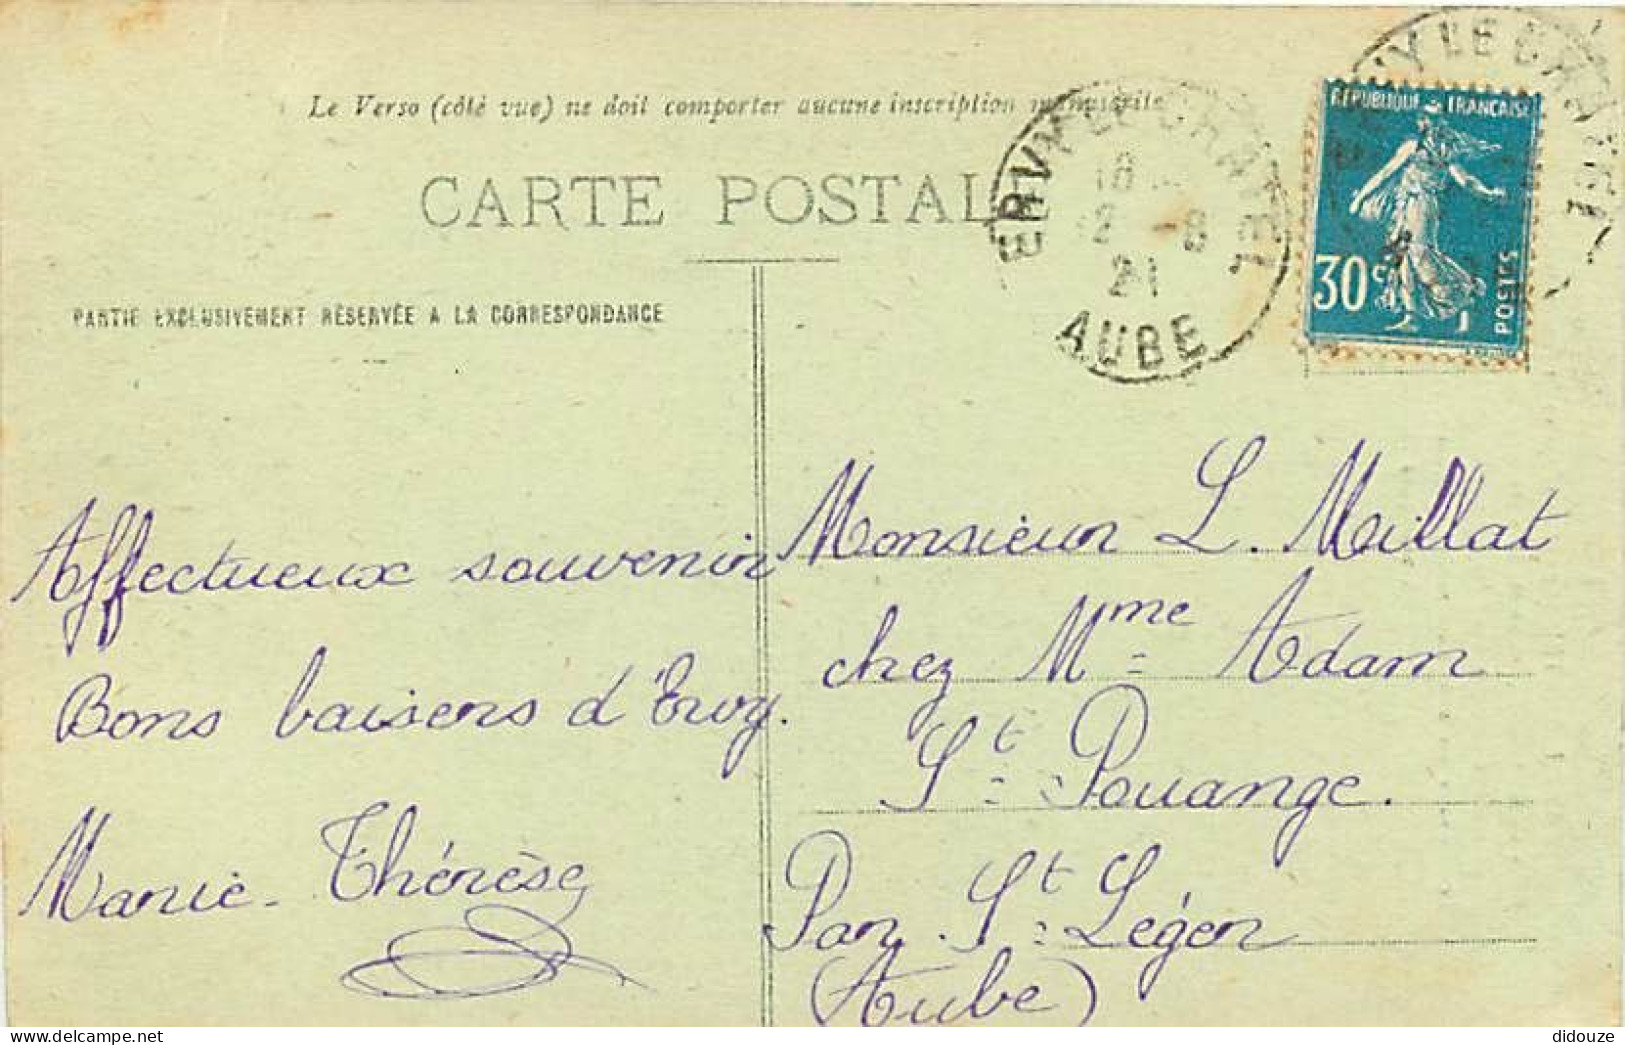 Le Verso (côté vue) ne doit comporter aucune inscription manuscrite
CARTE POSTALE
ERVY LE CHATEL
18
2 -8
21
AUBE
RÉPUBLIQUE FRANÇAISE
30 c
POSTES
VY LE CHATEL
PARTIE EXCLUSIVEMENT RÉSERVÉE A LA CORRESPONDANCE
Affectueux souvenir
Bons baisers d'Ervy.
Marie-Thérèse
Monsieur L. Millat
chez Mme Adam
St Pouange.
Par St Léger
(Aube)
didouze